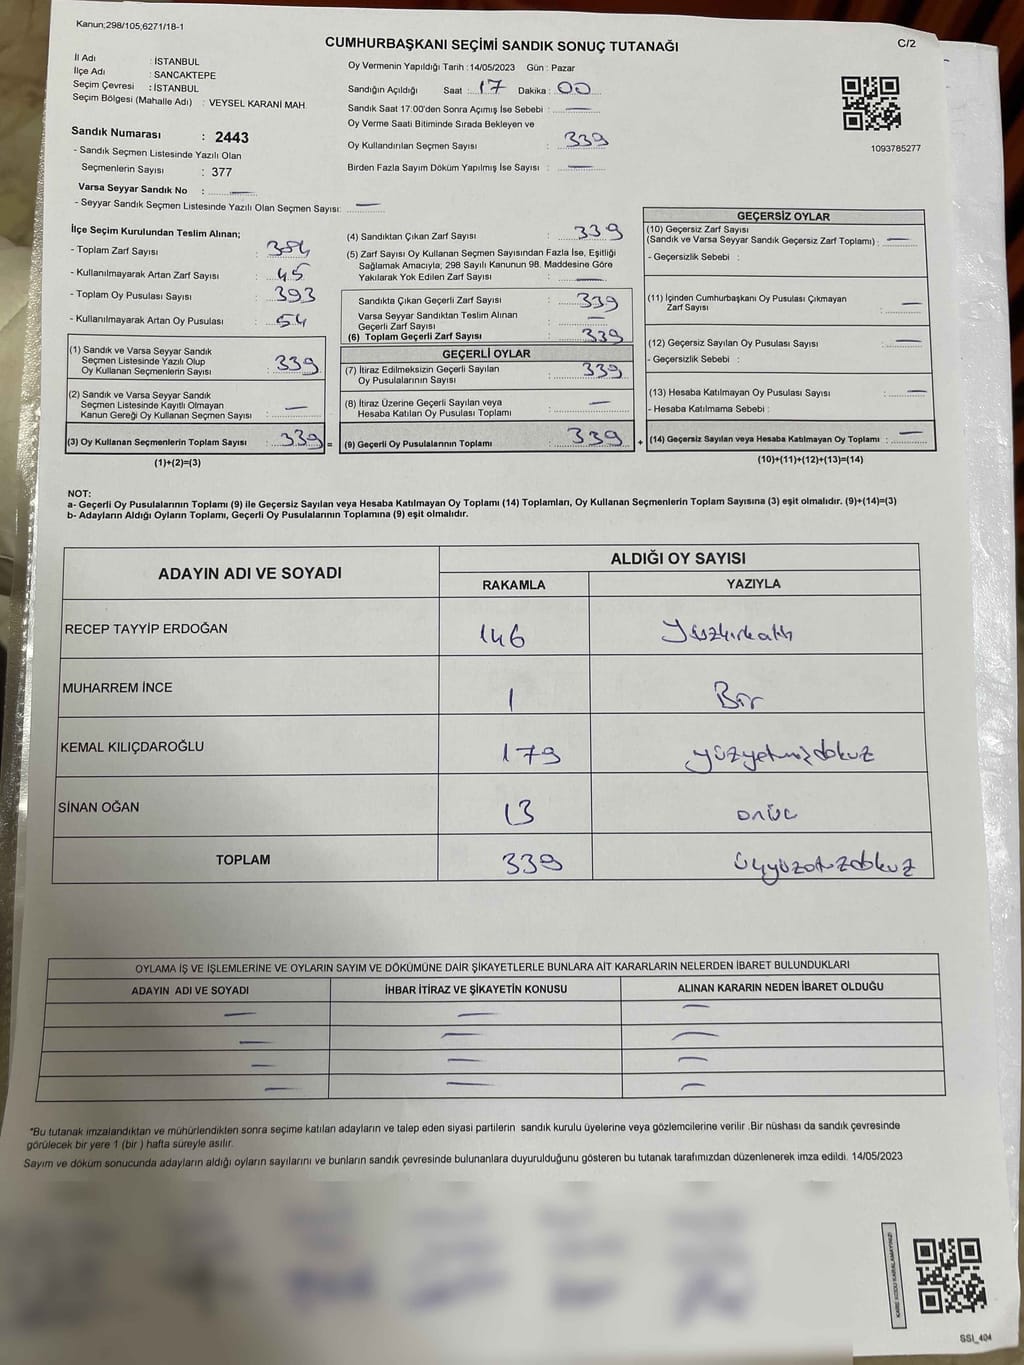 Kanun;298/105,6271/18-1
CUMHURBAŞKANI SEÇİMİ SANDIK SONUÇ TUTANAĞI
C/2
İl Adı : İSTANBUL
İlçe Adı : SANCAKTEPE
Seçim Çevresi : İSTANBUL
Seçim Bölgesi (Mahalle Adı) : VEYSEL KARANİ MAH.
Sandık Numarası : 2443
- Sandık Seçmen Listesinde Yazılı Olan
Seçmenlerin Sayısı : 377
Varsa Seyyar Sandık No : —
- Seyyar Sandık Seçmen Listesinde Yazılı Olan Seçmen Sayısı: —
Oy Vermenin Yapıldığı Tarih :14/05/2023 Gün : Pazar
Sandığın Açıldığı Saat : 17 Dakika : 00
Sandık Saat 17:00'den Sonra Açımış İse Sebebi : —
Oy Verme Saati Bitiminde Sırada Bekleyen ve
Oy Kullandırılan Seçmen Sayısı : 339
Birden Fazla Sayım Döküm Yapılmış İse Sayısı : —
1093785277
İlçe Seçim Kurulundan Teslim Alınan;
- Toplam Zarf Sayısı : 384
- Kullanılmayarak Artan Zarf Sayısı : 45
- Toplam Oy Pusulası Sayısı : 393
- Kullanılmayarak Artan Oy Pusulası : 54
(1) Sandık ve Varsa Seyyar Sandık
Seçmen Listesinde Yazılı Olup
Oy Kullanan Seçmenlerin Sayısı : 339
(2) Sandık ve Varsa Seyyar Sandık
Seçmen Listesinde Kayıtlı Olmayan
Kanun Gereği Oy Kullanan Seçmen Sayısı : —
(3) Oy Kullanan Seçmenlerin Toplam Sayısı : 339 =
(1)+(2)=(3)
(4) Sandıktan Çıkan Zarf Sayısı : 339
(5) Zarf Sayısı Oy Kullanan Seçmen Sayısından Fazla İse, Eşitliği
Sağlamak Amacıyla; 298 Sayılı Kanunun 98. Maddesine Göre
Yakılarak Yok Edilen Zarf Sayısı : —
Sandıkta Çıkan Geçerli Zarf Sayısı : 339
Varsa Seyyar Sandıktan Teslim Alınan
Geçerli Zarf Sayısı : —
(6) Toplam Geçerli Zarf Sayısı : 339
GEÇERLİ OYLAR
(7) İtiraz Edilmeksizin Geçerli Sayılan
Oy Pusulalarının Sayısı : 339
(8) İtiraz Üzerine Geçerli Sayılan veya
Hesaba Katılan Oy Pusulası Toplamı : —
(9) Geçerli Oy Pusulalarının Toplamı : 339 +
GEÇERSİZ OYLAR
(10) Geçersiz Zarf Sayısı
(Sandık ve Varsa Seyyar Sandık Geçersiz Zarf Toplamı) : —
- Geçersizlik Sebebi :
(11) İçinden Cumhurbaşkanı Oy Pusulası Çıkmayan
Zarf Sayısı : —
(12) Geçersiz Sayılan Oy Pusulası Sayısı : —
- Geçersizlik Sebebi :
(13) Hesaba Katılmayan Oy Pusulası Sayısı : —
- Hesaba Katılmama Sebebi :
(14) Geçersiz Sayılan veya Hesaba Katılmayan Oy Toplamı : —
(10)+(11)+(12)+(13)=(14)
NOT:
a- Geçerli Oy Pusulalarının Toplamı (9) ile Geçersiz Sayılan veya Hesaba Katılmayan Oy Toplamı (14) Toplamları, Oy Kullanan Seçmenlerin Toplam Sayısına (3) eşit olmalıdır. (9)+(14)=(3)
b- Adayların Aldığı Oyların Toplamı, Geçerli Oy Pusulalarının Toplamına (9) eşit olmalıdır.
ADAYIN ADI VE SOYADI ALDIĞI OY SAYISI
RAKAMLA YAZIYLA
RECEP TAYYİP ERDOĞAN 146 Yüzkırkaltı
MUHARREM İNCE 1 Bir
KEMAL KILIÇDAROĞLU 179 yüzyetmişdokuz
SİNAN OĞAN 13 onüç
TOPLAM 339 üçyüzotuzdokuz
OYLAMA İŞ VE İŞLEMLERİNE VE OYLARIN SAYIM VE DÖKÜMÜNE DAİR ŞİKAYETLERLE BUNLARA AİT KARARLARIN NELERDEN İBARET BULUNDUKLARI
ADAYIN ADI VE SOYADI İHBAR İTİRAZ VE ŞİKAYETİN KONUSU ALINAN KARARIN NEDEN İBARET OLDUĞU
— — —
— — —
— — —
— — —
*Bu tutanak imzalandıktan ve mühürlendikten sonra seçime katılan adayların ve talep eden siyasi partilerin sandık kurulu üyelerine veya gözlemcilerine verilir .Bir nüshası da sandık çevresinde
görülecek bir yere 1 (bir ) hafta süreyle asılır.
Sayım ve döküm sonucunda adayların aldığı oyların sayılarını ve bunların sandık çevresinde bulunanlara duyurulduğunu gösteren bu tutanak tarafımızdan düzenlenerek imza edildi. 14/05/2023
KARE KODU KARALAMAYINIZ!
SSI_404